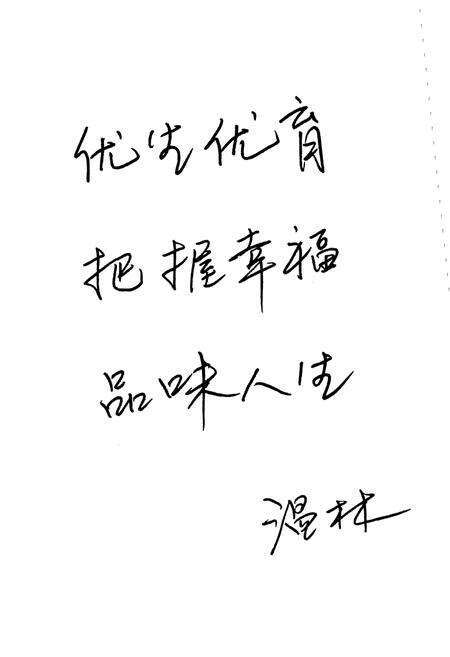 优生优育
把握幸福
品味人生
温林